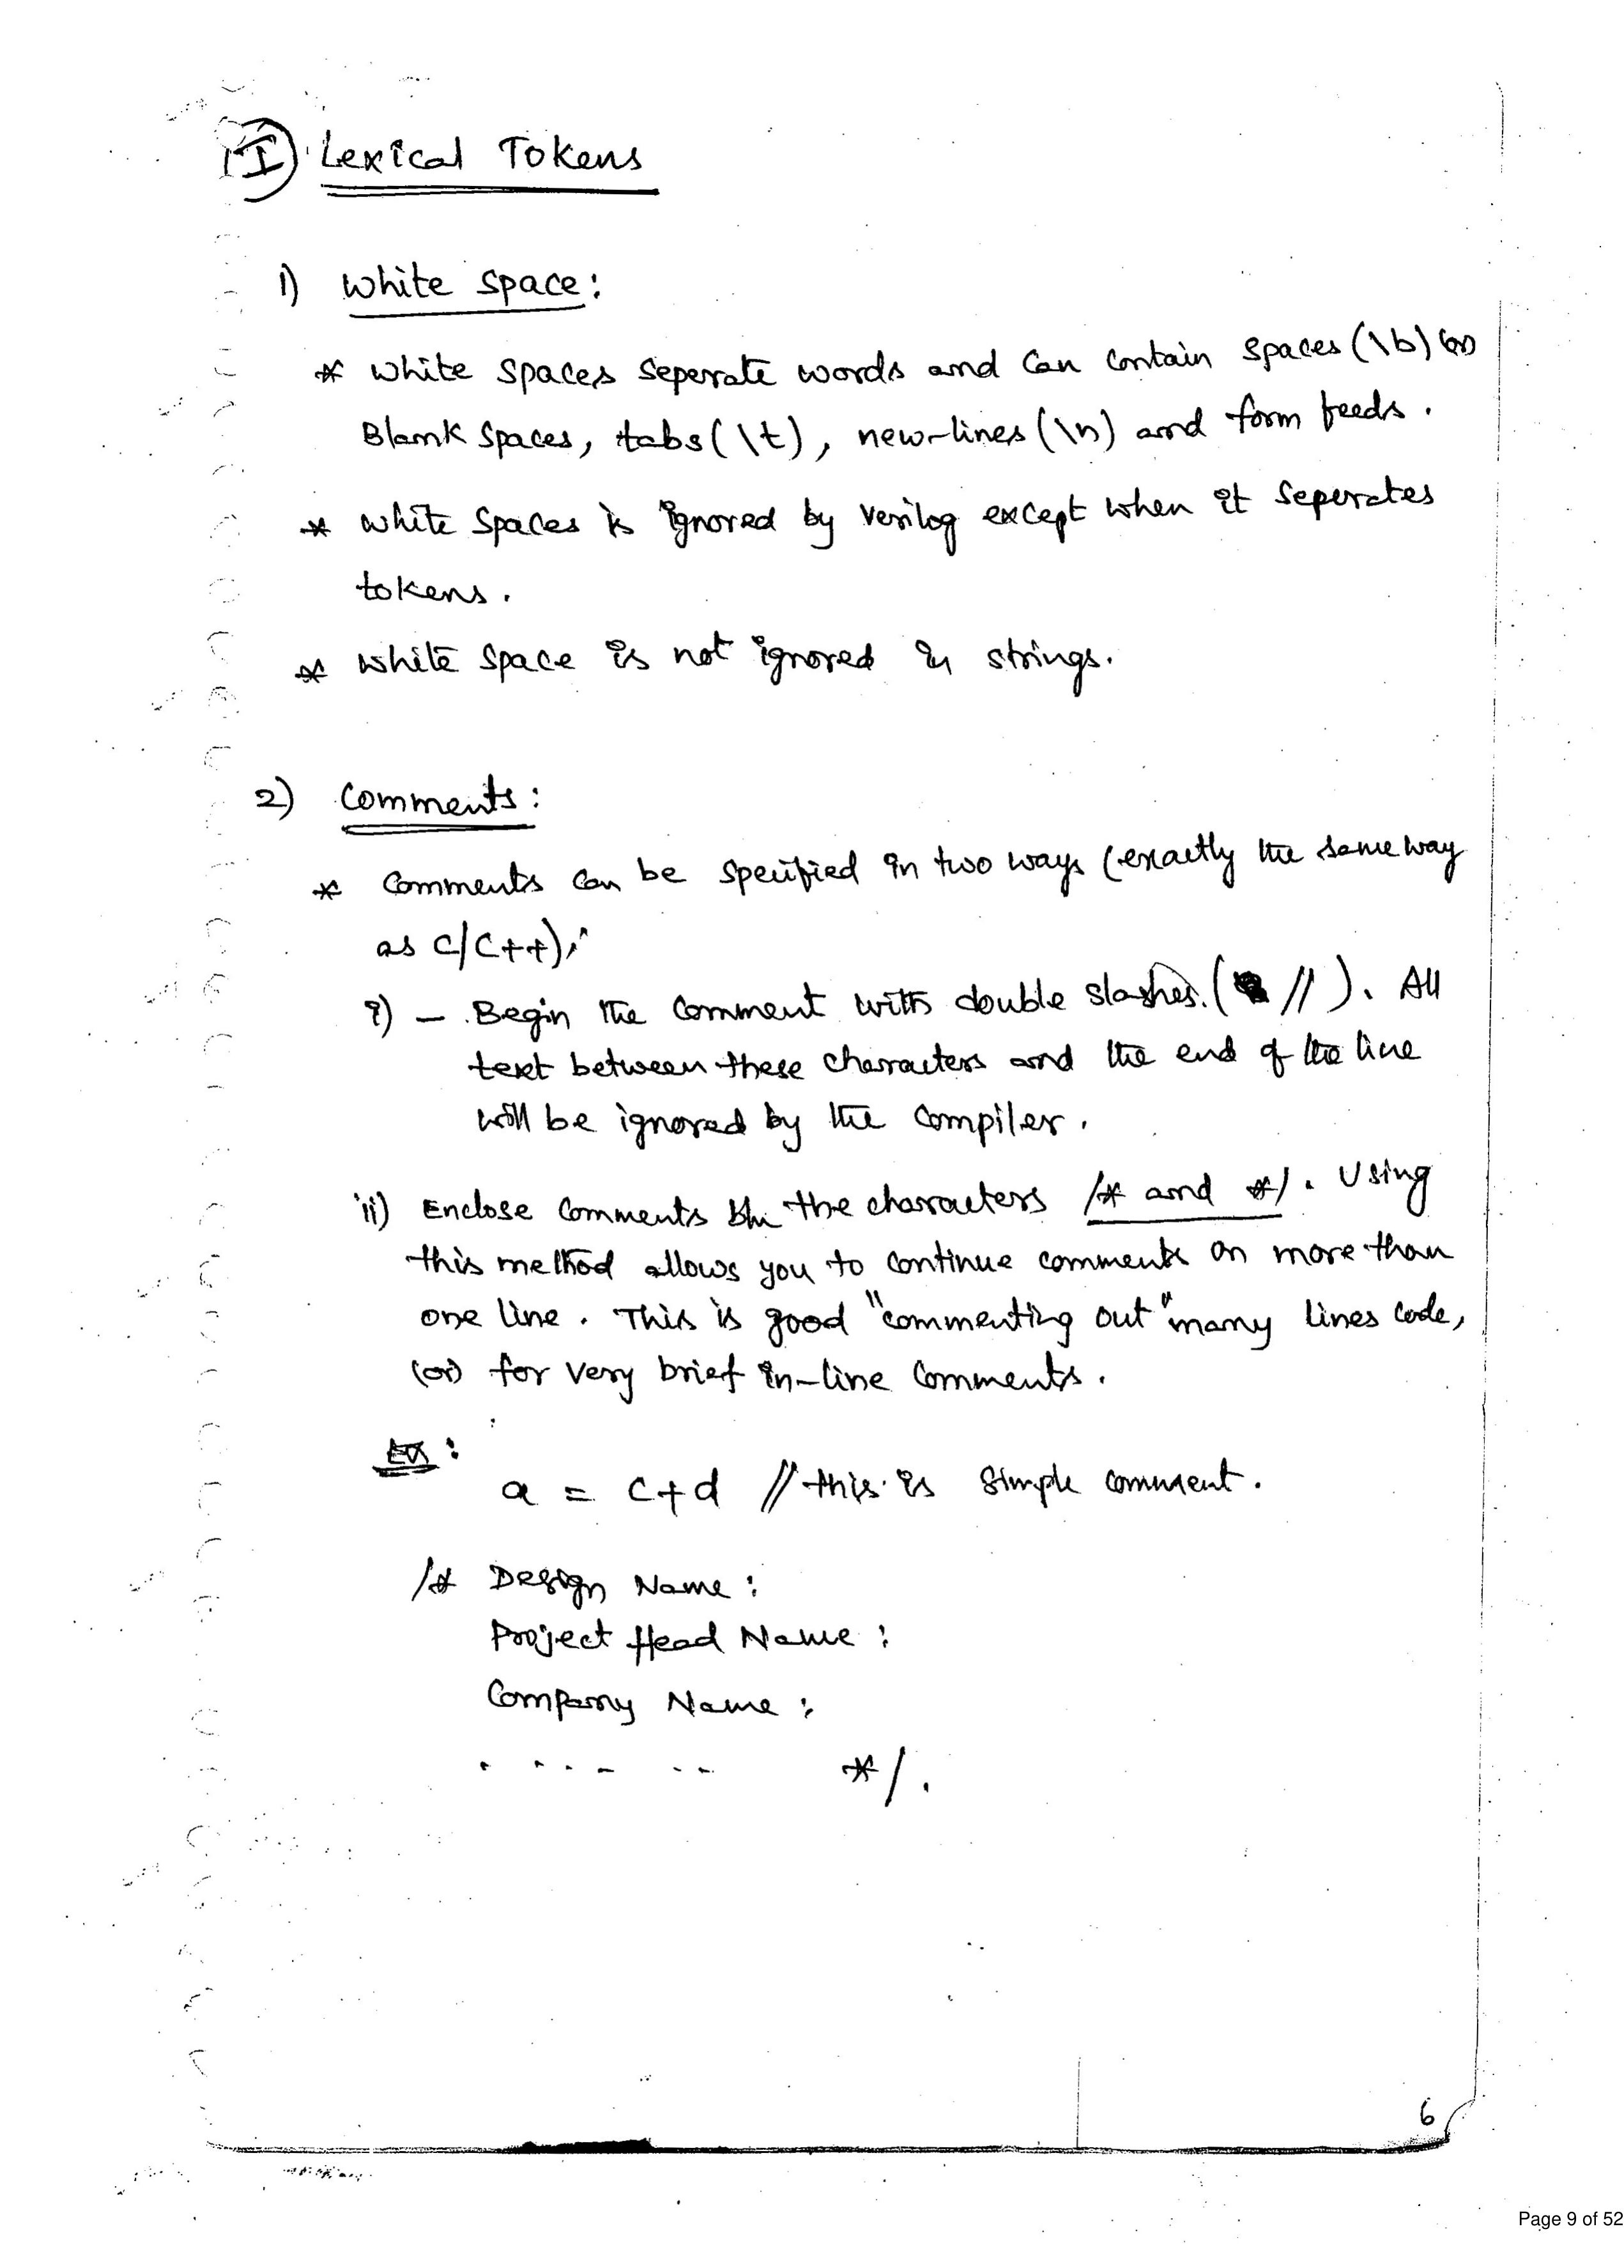 I) Lexical Tokens
1) White space:
* White spaces seperate words and can contain spaces (\b) (or)
Blank spaces, tabs (\t), new-lines (\n) and form feeds.
* White spaces is ignored by verilog except when it seperates
tokens.
* White space is not ignored in strings.
2) Comments:
* Comments can be specified in two ways (exactly the same way
as C/C++);
i) — Begin the comment with double slashes. ( // ). All
text between these characters and the end of the line
will be ignored by the compiler.
ii) Enclose comments the characters /* and */. Using
this method allows you to continue comments on more than
one line. This is good "commenting out" many lines code,
(or) for very brief in-line comments.
Ex:
a = c+d // this is simple comment.
/* Design Name:
Project Head Name:
Company Name:
. . . . – - - */.
6
Page 9 of 52